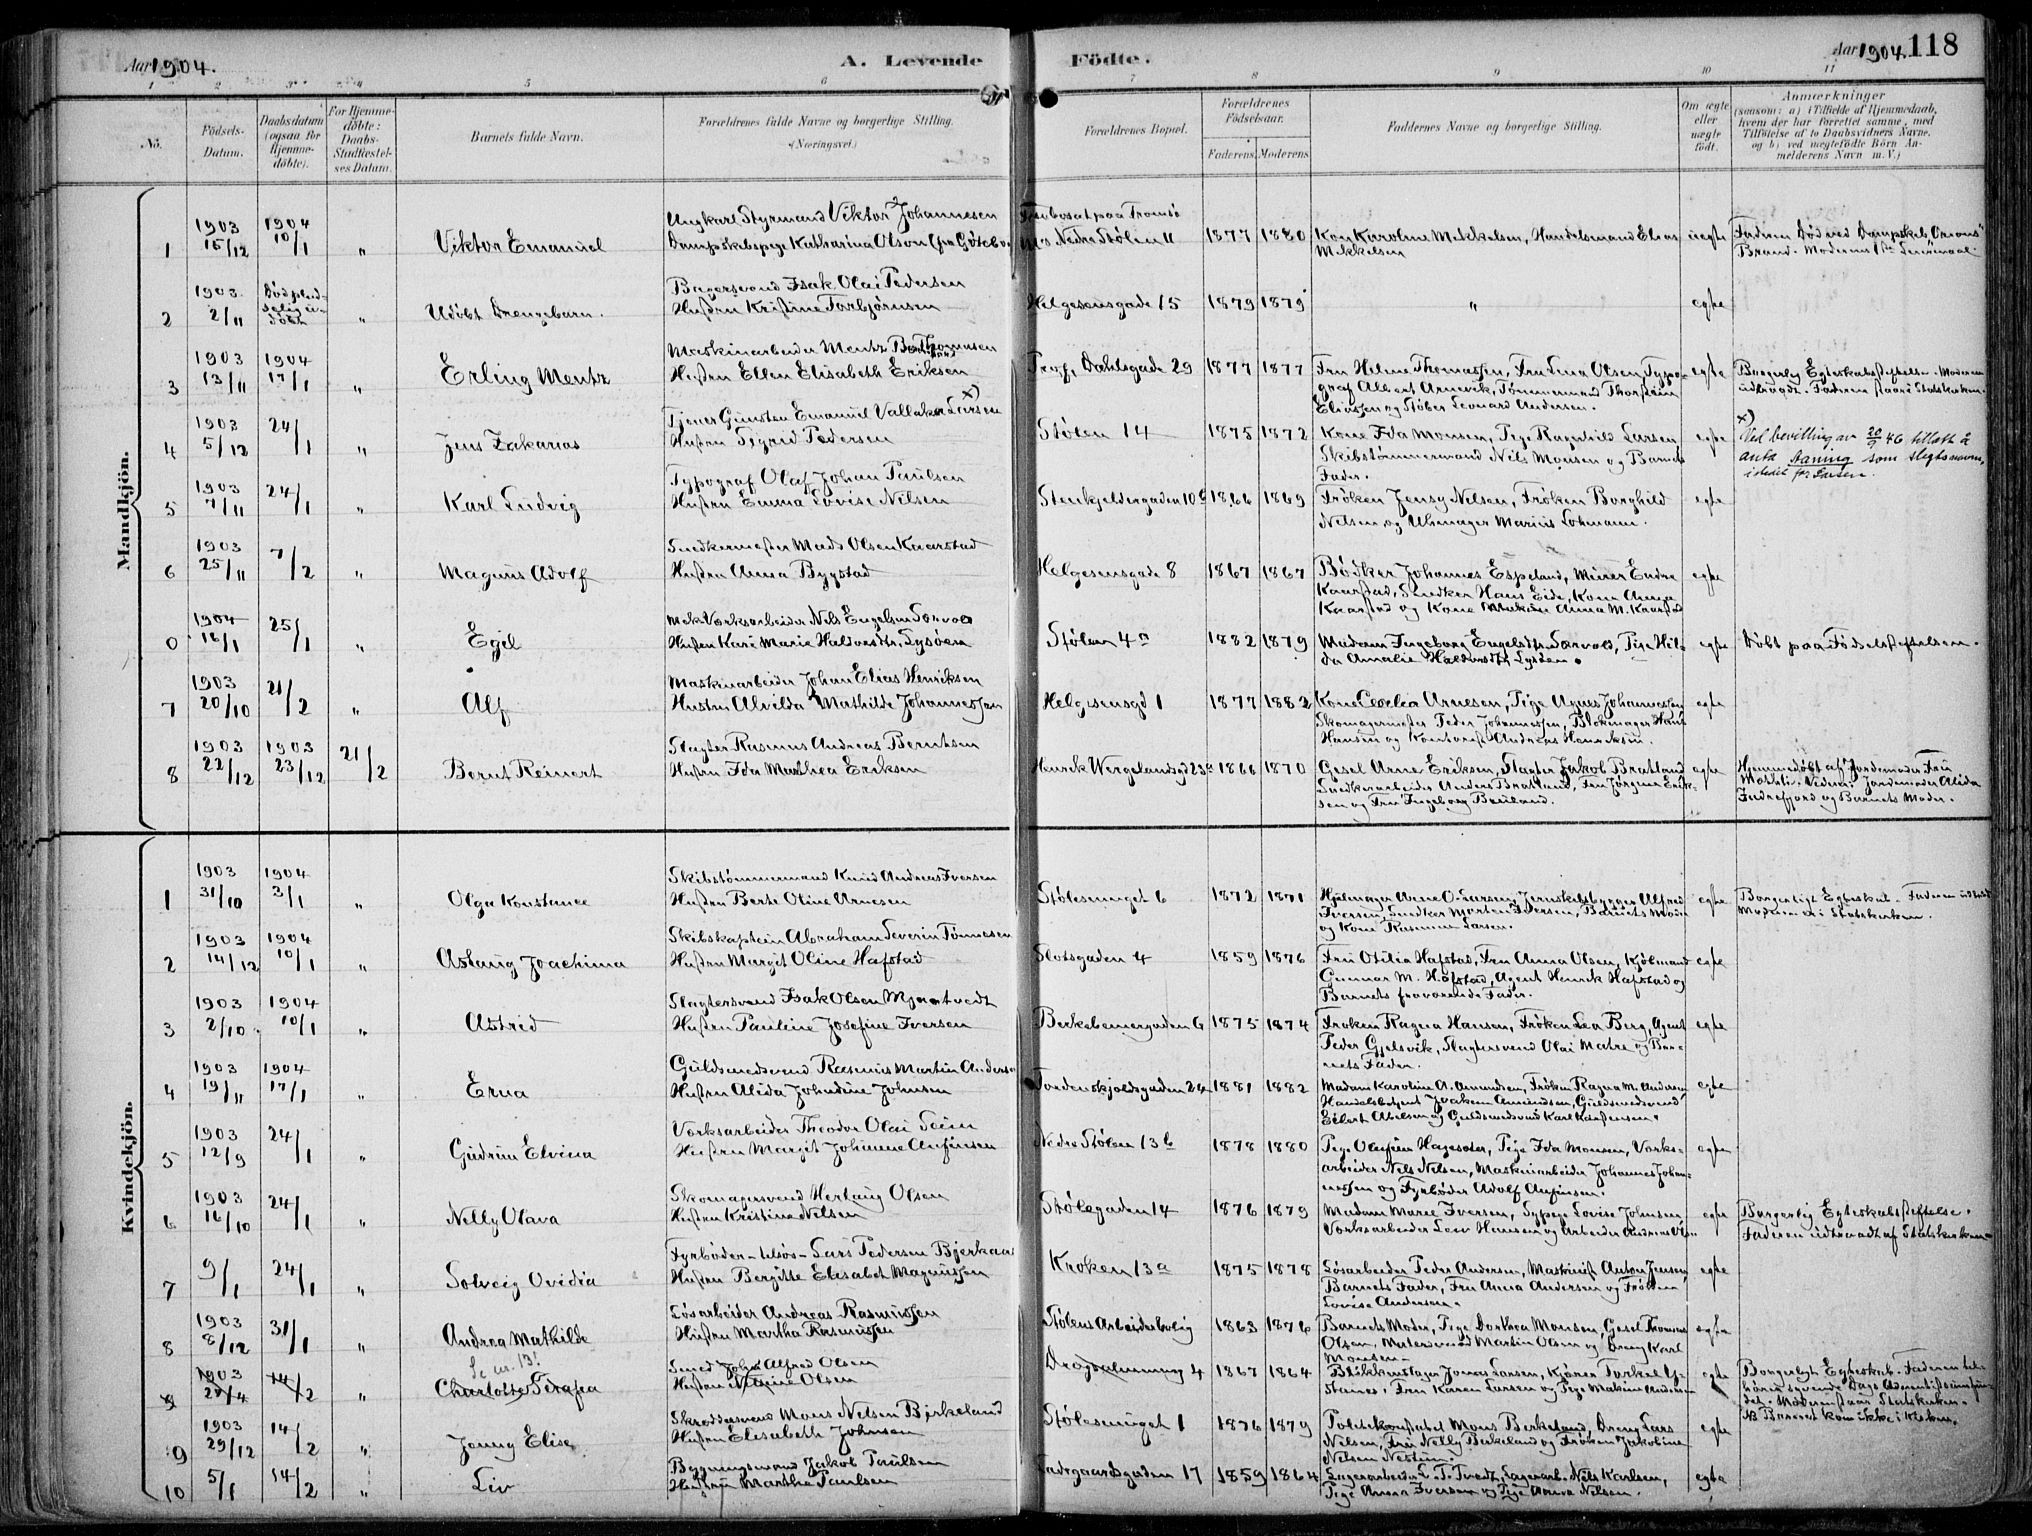 Aar 1904.
A. Levende
Födte.
Aar 1904. 118
1 2 3 4 5 6 7 8 9 10 11
No.
Födsels-
Datum.
Daabsdatum
(ogsaa for
Hjemme-
döbte).
For Hjemme-
döbte:
Daabs-
Stadfæstel-
ses Datum.
Barnets fulde Navn.
Forældrenes fulde Navne og borgerlige Stilling.
(Næringsvei.)
Forældrenes Bopæl.
Forældrenes
Födselsaar.
Faderens Moderens
Faddernes Navne og borgerlige Stilling.
Om ægte
eller
uægte
födt.
Anmærkninger
(saasom: a) i Tilfælde af Hjemmedaab,
hvem der har forrettet samme, med
Tilföielse af to Daabsvidners Navne,
og b) ved uægtefödte Börn An-
melderens Navn m. V.)
Mandkjön.
Ungkarl Styrmand Viktor Johannesen Fast bosat paa Tromsø
1 1903 15/12 1904 10/1 " Viktor Emanuel Dampskibspige Katharina Olson (fra Göteborg) Nedre Stølen 11 1877 1880 Kone Karoline Mikkelsen, Handelsmand Elias uegte Faderen død ved Dampskib Orions
Mikkelsen Brand. Moderens
Bagersvend Isak Olai Pedersen
2 1903 2/11 Død pludselig udöbt " Udöbt Drengebarn. Hustru Kristine Torbjørnsen Helgesensgade 15 1879 1879 " egte
Maskinarbeider Mentz Thomasen
3 1903 13/11 1904 17/1 " Erling Mentz Hustru Ellen Elisabeth Eriksen Prof. Dahlsgade 29 1877 1877 Fru Helene Thomassen, Fru Lina Olsen, Typo- egte Borgerlig Egteskabsstiftelse. Moderen
graf Albert Arnevik, Tømmermand Thorstein udtraadt. Faderen staar i Statskirken.
Eliassen og Støber Leonard Andersen.
Tjener Gunsten Emanuel Vallaker Larsen x)
4 1903 5/12 24/1 " Jens Zakarias Hustru Sigrid Pedersen Stølen 14 1875 1872 Kone Ida Monsen, Pige Ragnhild Larsen egte x) Ved bevilling av 20/9 46 tillatt å
Skibstømmermand Nils Monsen og Barnets anta Aaning som slegtsnavn,
Fader. istedet for Larsen.
Typograf Olaf Johan Paulsen
5 1903 7/11 24/1 " Karl Ludvig Hustru Emma Lovise Nilsen Stenkjeldergaden 10 1866 1869 Frøken Jensy Nelsen, Frøken Borghild egte
Nelsen og Uhrmager Marius Lohmann.
Snedkermester Mads Olsen Kaarstad
6 1903 25/11 7/2 " Magnus Adolf Hustru Anna Bygstad Helgesensgade 8 1867 1867 Bødker Johannes Espeland, Murer Endre egte
Kaarstad, Snedker Hans Eide, Kone Anna
Kaarstad og Kone Anna M. Kaarstad
Mek Værksarbeider Nels Engelsen Sørvold
0 1904 16/1 25/1 " Egil Hustru Kari Marie Haldorsdtr. Lysøen Stølen 4a 1882 1879 Madam Ingeborg Engelsdtr. Sørvold, Pige Hil- egte Døbt paa Fødselsstiftelsen.
da Amalie Haldorsdtr. Lysøen.
Maskinarbeider Johan Elias Henriksen
7 1903 20/10 21/2 " Alf Hustru Alvilda Mathilde Johannessen Helgesensgd 1 1877 1882 Kone Cecelia Arnesen, Pige Agnes Johannessen egte
Skomagermester Peder Johannessen, Blokmager Hans
Hansen og Kontorist Andreas Henriksen
Slagter Rasmus Andreas Berntsen
8 1903 22/12 1903 23/12 21/2 Bernt Reinert Hustru Ida Marthea Eriksen Henrik Wergelandsgd 23a 1866 1870 Gesel Arne Eriksen, Slagter Jakob Bratland egte Hjemmedøbt af Jordemoder Fru
Snedkerarbeider Anders Bratland, Fru Jørgine Erik- Vidner: Jordemoder Alida
sen og Fru Ingeborg Breiland. Indrefjord og Barnets Moder.
Kvindekjön.
Skibstømmermand Knud Andreas Iversen
1 1903 31/10 1904 3/1 " Olga Konstance Hustru Berte Oline Arnesen Stølesmuget 6 1872 1871 Hjulmager Arne O. Larsen, Jernskibsbygger Alfred egte Borgerligt Egteskab. Faderen udtraadt
Iversen, Snedker Morten Iversen, Barnets Moder Moderen i Statskirken.
og Kone Rasmine Larsen.
Skibskaptein Abraham Severin Tønnesen
2 1903 14/12 1904 10/1 " Aslaug Joachima Hustru Margit Oline Hafstad Slotsgaden 4 1859 1876 Fru Otilia Hafstad, Fru Anna Olsen, Kjøbmand egte
Gunnar M. Hafstad, Agent Henrik Hafstad og
Barnets fraværende Fader.
Slagtersvend Isak Olsen Mjaatvedt
3 1903 2/10 1904 10/1 " Astrid Hustru Pauline Josefine Iversen Berkebeinergaden 6 1875 1874 Frøken Ragna Hansen, Frøken Lea Berg, Agent egte
Peder Gjelsvik, Slagtersvend Olai Matre og Bar-
nets Fader.
Guldsmedsvend Rasmus Martin Andersen
4 1903 19/11 1904 17/1 " Erna Hustru Alida Johndine Johnsen Tordenskjoldsgaden 24 1881 1882 Madam Karoline A. Amundsen, Frøken Ragna M. Andersen egte
Handelsbetjent Joakim Amundsen, Guldsmedsvend
Eilert Abelsen og Guldsmedsvend Karl Karstensen.
Værksarbeider Theodor Olai Seim
5 1903 12/9 24/1 " Gudrun Elvina Hustru Margit Johanne Anfinsen Nedre Stølen 13b 1878 1880 Pige Olufine Hagesæter, Pige Ida Monsen, Værks- egte
arbeider Nels Nelsen, Maskinarbeider Johannes Johan-
nessen og Fyrbøder Adolf Anfinsen.
Skomagersvend Herlaug Olsen
6 1903 16/10 24/1 " Nelly Olava Hustru Kristine Nelsen Stølegaden 14 1876 1879 Madam Marie Iversen, Sypige Lovise Johnsen egte Borgerlig Egteskabsstiftelse.
Værksarbeider Hansen og Arbeider Andreas Olsen Faderen udtraadt af Statskirken.
Fyrbøder - tilsøs - Lars Pedersen Bjerkaas
7 9/1 24/1 Solveig Ovidia Hustru Bergitte Elisabet Magnussen Kroken 13a 1875 1878 Løsarbeider Peder Andersen, Maskinist Anton Jensen, egte
Barnets Fader, Fru Anna Andersen og Frøken
Lovise Andersen.
Løsarbeider Andreas Rasmussen
8 1903 8/12 31/1 " Andrea Mathilde Hustru Martha Rasmussen Stølens Arbeiderbolig 1863 1876 Barnets Moder, Pige Dorthea Monsen, Gesel Thomas egte
Olsen, Matersvend Martin Olsen og Dreng Karl
Monsen.
Se nr. 13! Smed John Alfred Olsen
9 1903 24/4 14/2 " Charlotte Serafia Hustru Olsen Dragsalmenning 4 1867 1864 Blikkenslager Jonas Larsen, Kjører Torkel egte Borgerligt Egteskab. Faderen til-
Fru Karen Larsen og Pige hører syvende Dags Adventistsamfun-
det. Moderen staar Statskirken.
NB Barnet kom ikke i Kirken.
Skreddersvend Mons Nelsen Birkeland
9 1903 29/12 14/2 " Jenny Elise Hustru Elisabeth Johnsen Stølesmuget 1 1876 1879 Politikonstabel Mons Berkeland, Dreng Lars egte
Nelsen, Fru Nelly Birkeland og Frøken Jakobine
Nelsen
Bygningsmand Jakob Paulsen
10 5/1 14/2 " Liv Hustru Martha Paulsen Ladegaardsgaden 17 1859 1864 Lagerarbeider L. T. Tvedt, Lagerarb. Nels Karlsen, egte
Pige Anna Iversen og Pige Anna Nelsen.